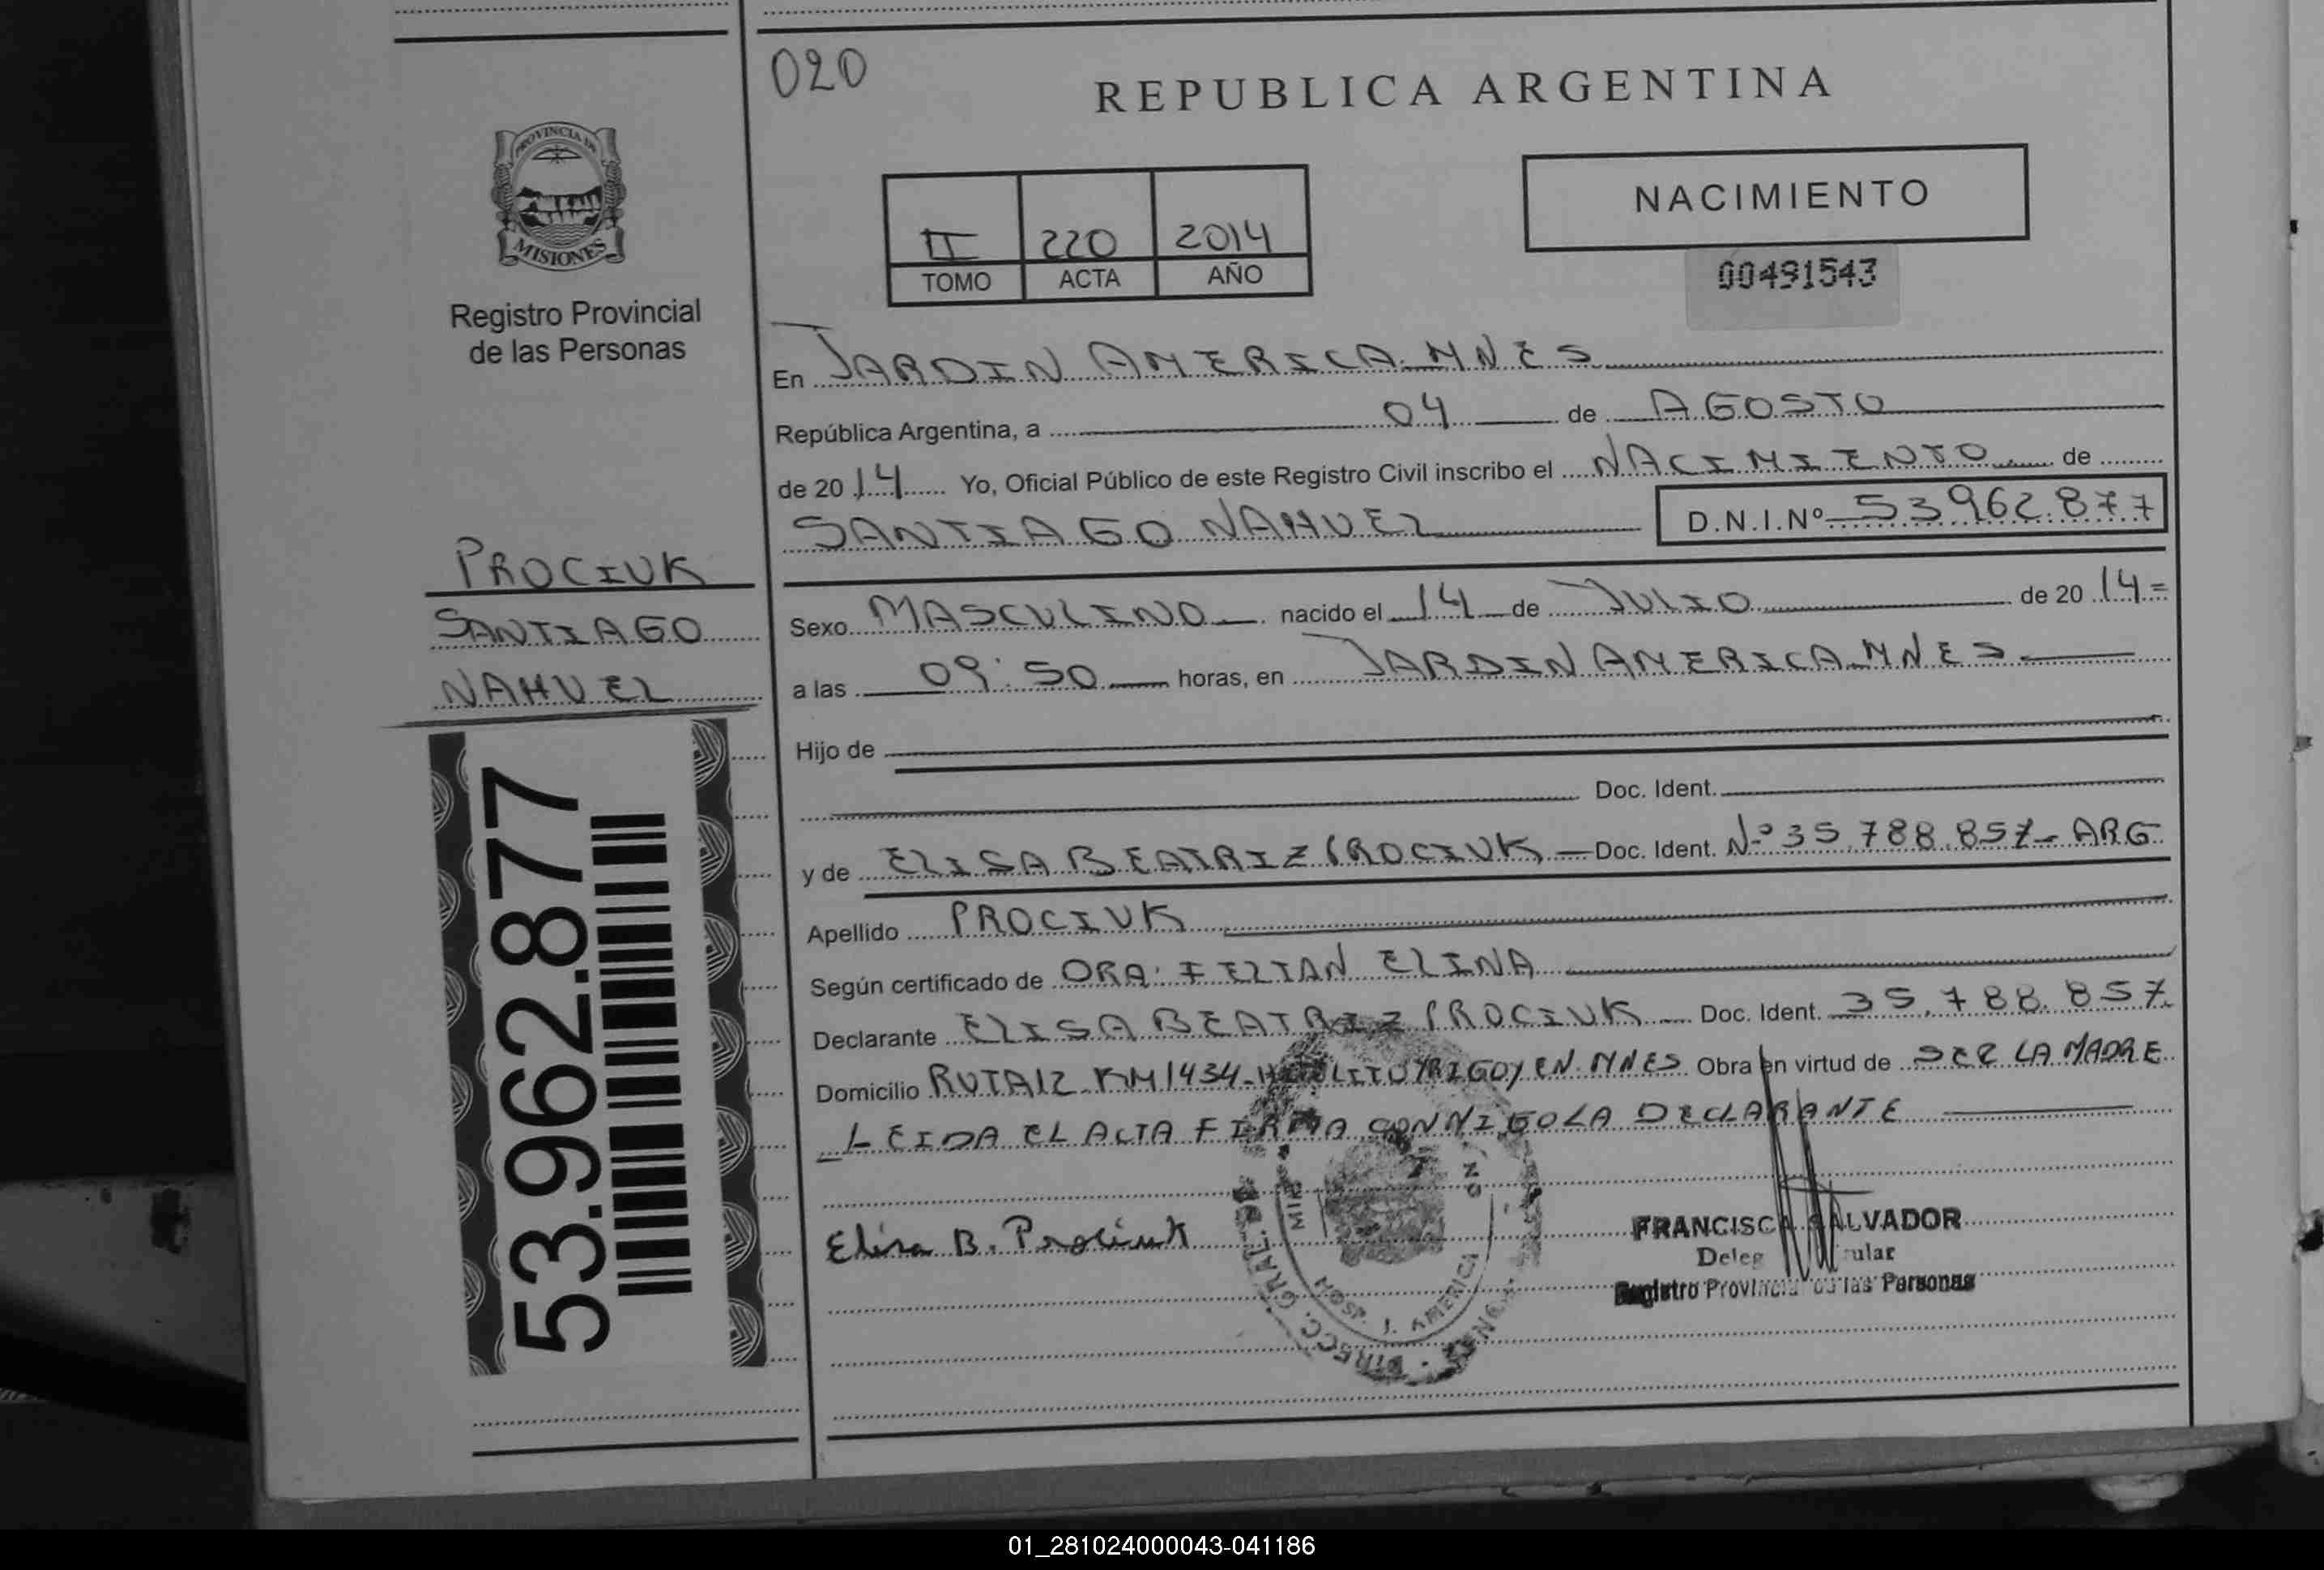 020
REPUBLICA ARGENTINA
PROVINCIA DE
MISIONES
Registro Provincial
de las Personas
II 220 2014
TOMO ACTA AÑO
NACIMIENTO
00491543
En JARDIN AMERICA. MNES
República Argentina, a 04 de AGOSTO
de 2014 Yo, Oficial Público de este Registro Civil inscribo el NACIMIENTO de
SANTIAGO NAHUEL D.N.I.Nº 53962.877
PROCIUK
SANTIAGO
NAHUEL
53.962.877
Sexo MASCULINO nacido el 14 de JULIO de 20 14=
a las 09:50 horas, en JARDIN AMERICA. MNES
Hijo de
Doc. Ident.
y de ELISA BEATRIZ PROCIUK - Doc. Ident. Nº 35.788.857- ARG.
Apellido PROCIUK
Según certificado de DRA: FELTAN ELINA
Declarante ELISA BEATRIZ PROCIUK Doc. Ident. 35.788.857
Domicilio RUTA12 KM1434-HIPOLITO YRIGOYEN. MNES Obra en virtud de SER LA MADRE
LEIDA EL ACTA FIRMA CONMIGO LA DECLARANTE
Elisa B. Prociuk
DIRECC. GRAL.
HOSP. J. AMERICA
FRANCISCA SALVADOR
Registro Provincial de las Personas
01_281024000043-041186